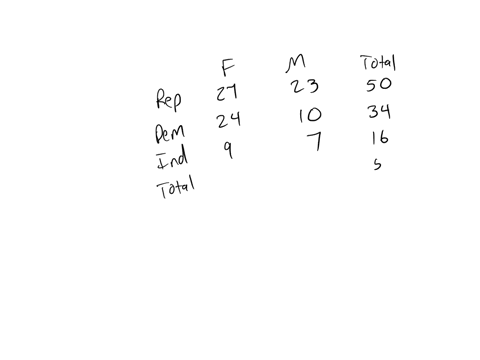 F M Total
Rep 27 23 50
Dem 24 10 34
Ind 9 7 16
Total